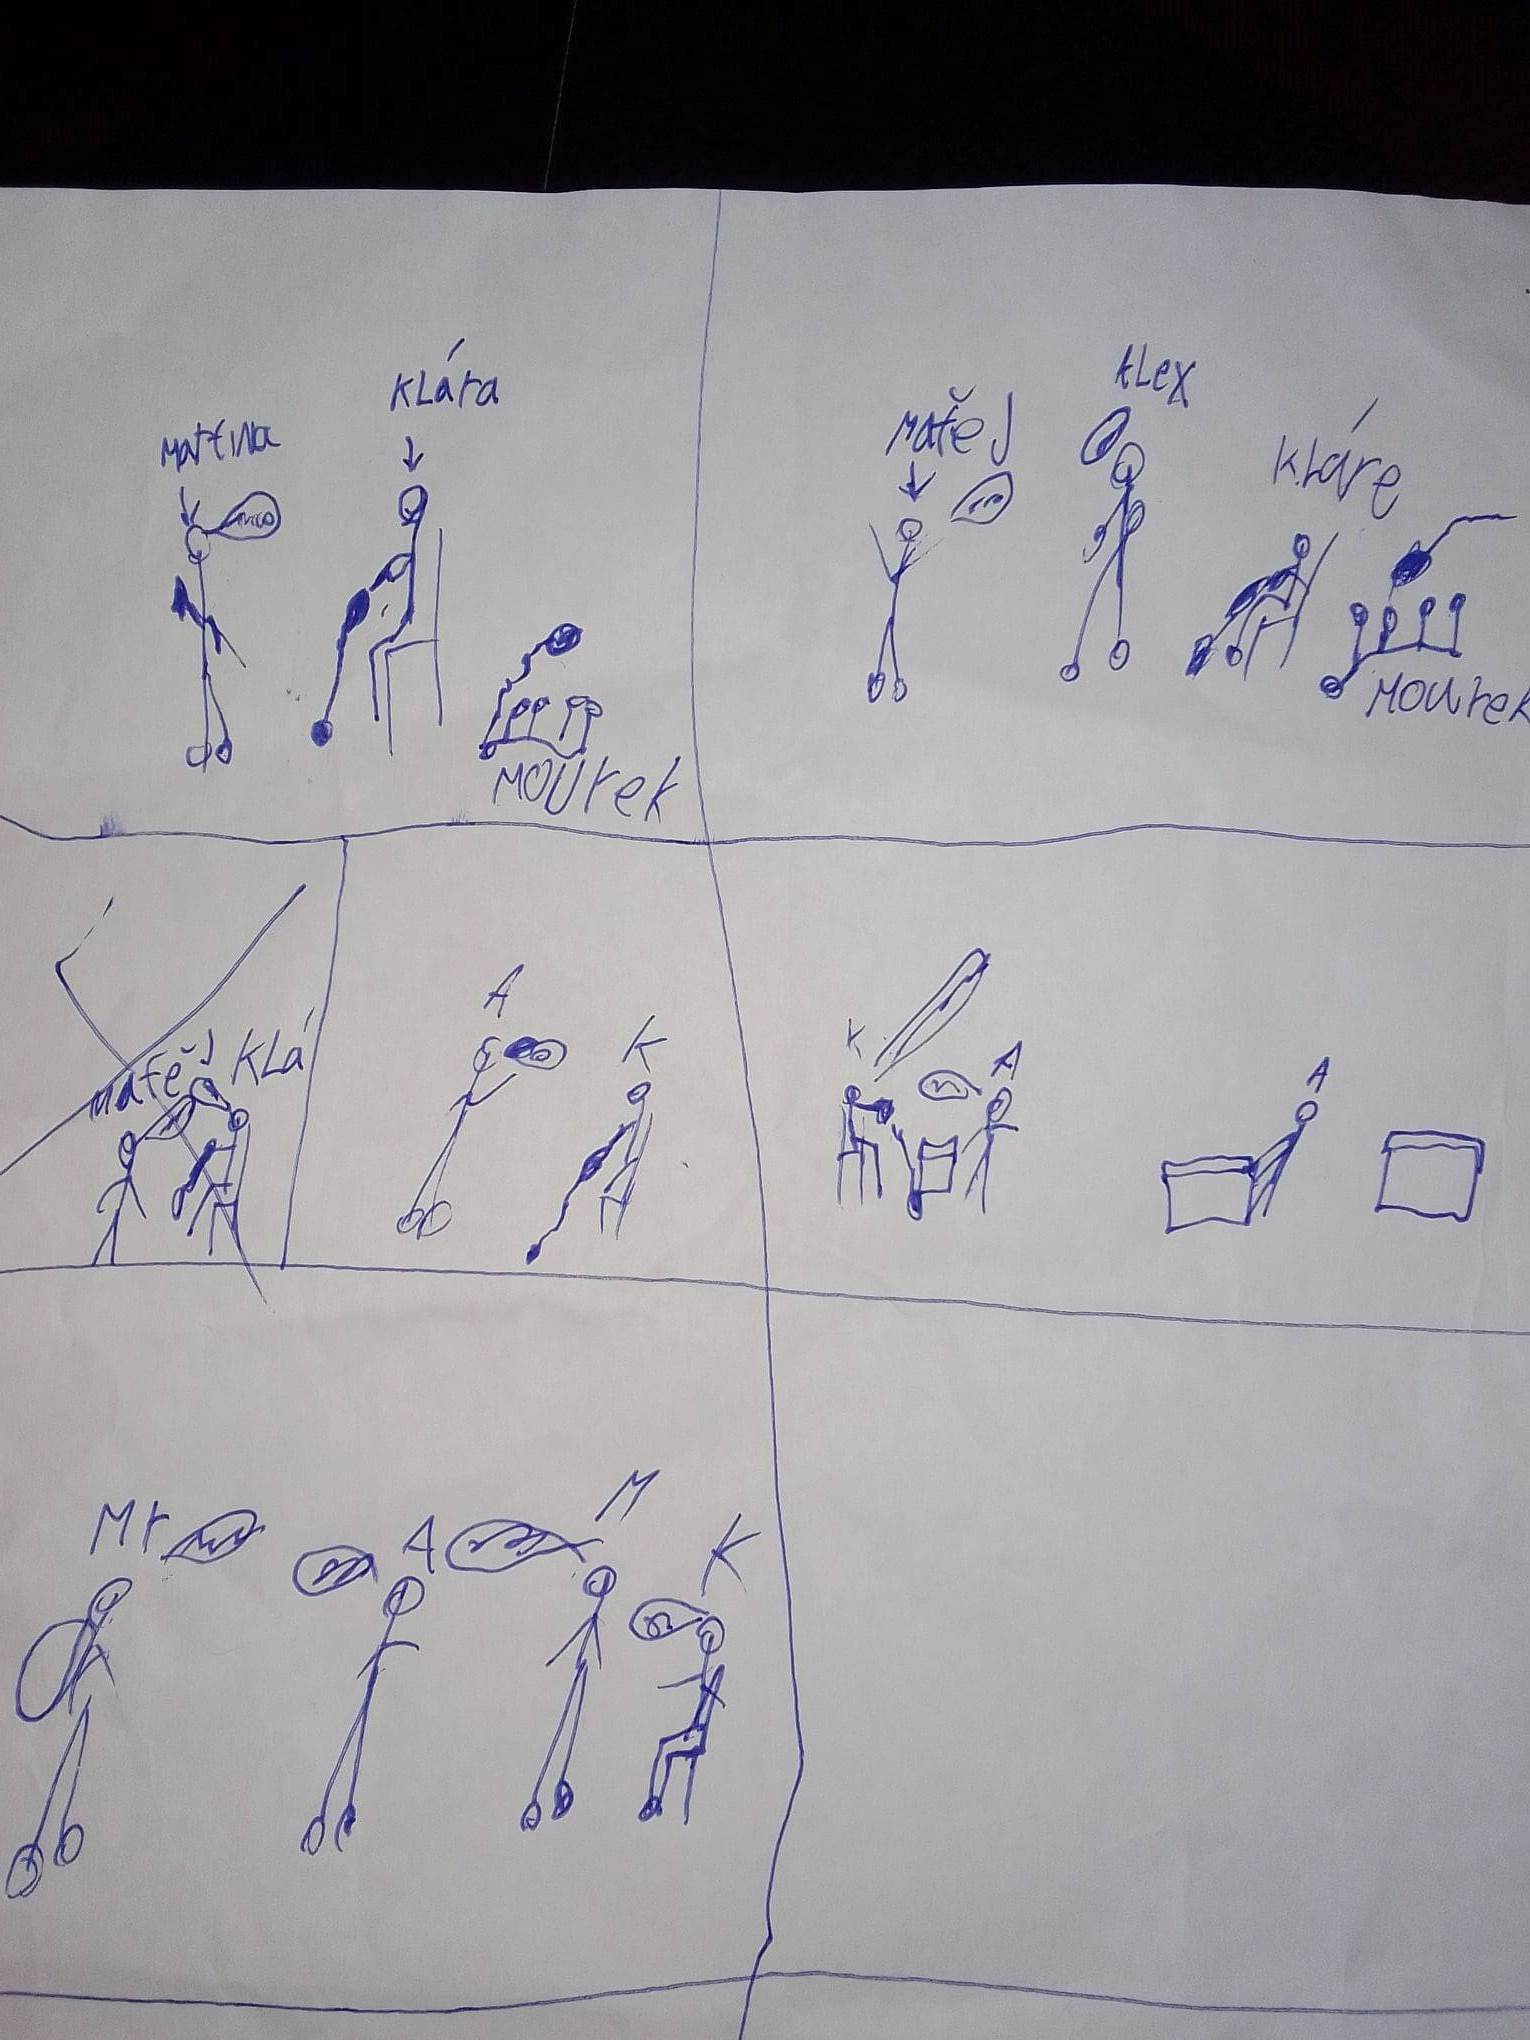 Martina
Klára
MOUrek
Matěj
Alex
Kláre
MOUrek
Matěj
KLá
A
K
K
A
A
Mr
A
M
K